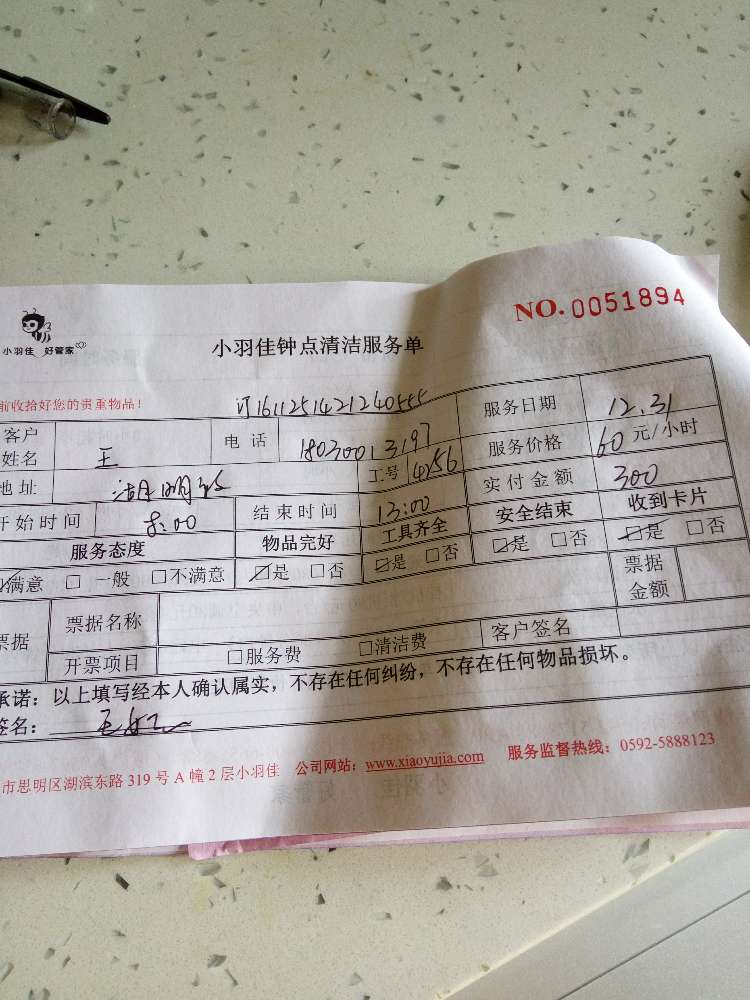 NO. 0051894
小羽佳 好管家
小羽佳钟点清洁服务单
前收拾好您的贵重物品！ 订1611251421240555
客户姓名 王 电话 18030013197 服务日期 12.31
地址 工号 4256 服务价格 60 元/小时
开始时间 8:00 结束时间 13:00 实付金额 300
服务态度 物品完好 工具齐全 安全结束 收到卡片
☑满意 □一般 □不满意 ☑是 □否 ☑是 □否 ☑是 □否 ☑是 □否
票据 票据名称 票据金额
开票项目 □服务费 □清洁费 客户签名
承诺：以上填写经本人确认属实，不存在任何纠纷，不存在任何物品损坏。
签名：
市思明区湖滨东路 319 号 A 幢 2 层小羽佳 公司网站：www.xiaoyujia.com 服务监督热线：0592-5888123